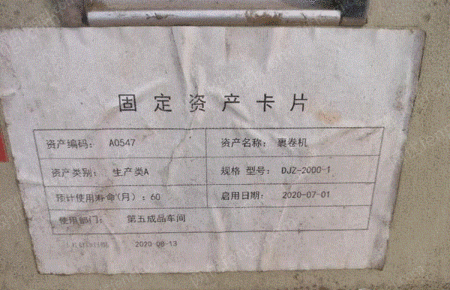 固定资产卡片
资产编码: A0547 资产名称: 裹卷机
资产类别: 生产类A 规格 型号: DJZ-2000-1
预计使用寿命(月): 60 启用日期: 2020-07-01
使用部门: 第五成品车间
2020-08-13